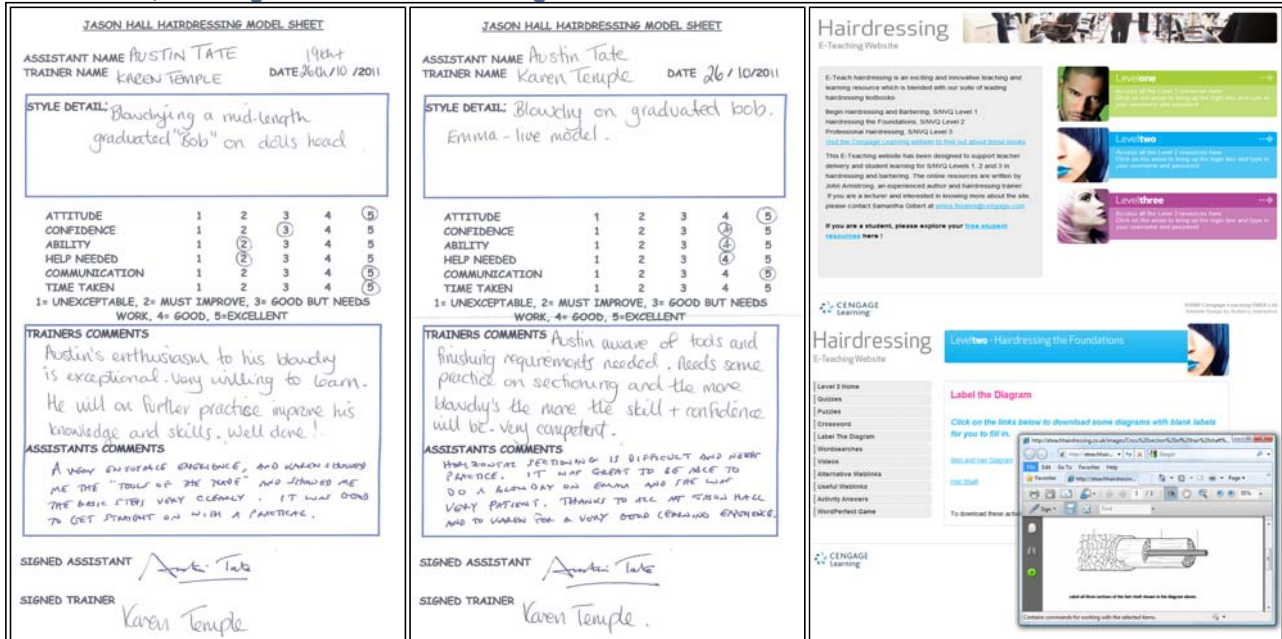 JASON HALL HAIRDRESSING MODEL SHEET
ASSISTANT NAME AUSTIN TATE
19th+
TRAINER NAME KAREN TEMPLE DATE 26th/10 /2011
STYLE DETAIL: Blowdrying a mid-length
graduated "Bob" on dolls head
ATTITUDE 1 2 3 4 5
CONFIDENCE 1 2 3 4 5
ABILITY 1 2 3 4 5
HELP NEEDED 1 2 3 4 5
COMMUNICATION 1 2 3 4 5
TIME TAKEN 1 2 3 4 5
1= UNEXCEPTABLE, 2= MUST IMPROVE, 3= GOOD BUT NEEDS
WORK, 4= GOOD, 5=EXCELLENT
TRAINERS COMMENTS
Austin's enthusiasm to his blowdry
is exceptional. Very willing to learn.
He will on further practise improve his
knowledge and skills. Well done!
ASSISTANTS COMMENTS
A VERY ENJOYABLE EXPERIENCE, AND KAREN SHOWED
ME THE "TOOLS OF THE TRADE" AND SHOWED ME
THE BASIC STEPS VERY CLEARLY. IT WAS GOOD
TO GET STRAIGHT ON WITH A PRACTICAL.
SIGNED ASSISTANT Austin Tate
SIGNED TRAINER
Karen Temple
JASON HALL HAIRDRESSING MODEL SHEET
ASSISTANT NAME Austin Tate
TRAINER NAME Karen Temple DATE 26 / 10/2011
STYLE DETAIL: Blowdry on graduated bob.
Emma - live model.
ATTITUDE 1 2 3 4 5
CONFIDENCE 1 2 3 4 5
ABILITY 1 2 3 4 5
HELP NEEDED 1 2 3 4 5
COMMUNICATION 1 2 3 4 5
TIME TAKEN 1 2 3 4 5
1= UNEXCEPTABLE, 2= MUST IMPROVE, 3= GOOD BUT NEEDS
WORK, 4= GOOD, 5=EXCELLENT
TRAINERS COMMENTS Austin aware of tools and
finishing requirements needed. Needs some
practice on sectioning and the more
blowdry's the more the skill + confidence
will be. Very competent.
ASSISTANTS COMMENTS
HORIZONTAL SECTIONING IS DIFFICULT AND NEEDS
PRACTICE. IT WAS GREAT TO BE ABLE TO
DO A BLOW DRY ON EMMA AND SHE WAS
VERY PATIENT. THANKS TO ALL AT JASON HALL
AND TO KAREN FOR A VERY GOOD LEARNING EXPERIENCE.
SIGNED ASSISTANT Austin Tate
SIGNED TRAINER
Karen Temple.
Hairdressing
E-Teaching Website
E-Teach hairdressing is an exciting and innovative teaching and
learning resource which is blended with our suite of leading
hairdressing textbooks
Begin Hairdressing and Barbering, S/NVQ Level 1
Hairdressing the Foundations, S/NVQ Level 2
Professional Hairdressing, S/NVQ Level 3
Visit the Cengage Learning website to find out about these books
This E-Teaching website has been designed to support teacher
delivery and student learning for S/NVQ Levels 1, 2 and 3 in
hairdressing and barbering. The online resources are written by
John Armstrong, an experienced author and hairdressing trainer.
If you are a lecturer and interested in knowing more about the site,
please contact Samantha Gilbert at
If you are a student, please explore your free student
resources here !
Levelone
Access all the Level 1 resources here.
Click on the arrow to bring up the login box and type in
your username and password
Leveltwo
Access all the Level 2 resources here.
Click on the arrow to bring up the login box and type in
your username and password
Levelthree
Access all the Level 3 resources here.
Click on the arrow to bring up the login box and type in
your username and password
CENGAGE
Learning
Hairdressing
E-Teaching Website
Leveltwo - Hairdressing the Foundations
Level 2 Home
Quizzes
Puzzles
Crossword
Label The Diagram
Wordsearches
Videos
Alternative Weblinks
Useful Weblinks
Activity Answers
WordPerfect Game
Label the Diagram
Click on the links below to download some diagrams with blank labels
for you to fill in.
Skin and Hair Diagram
Hair Shaft
To download these activ
File Edit Go To Favorites Help
Favorites
Page
Sign
Find
Label all three sections of the hair shaft shown in the diagram above.
Contains commands for working with the selected items.
CENGAGE
Learning